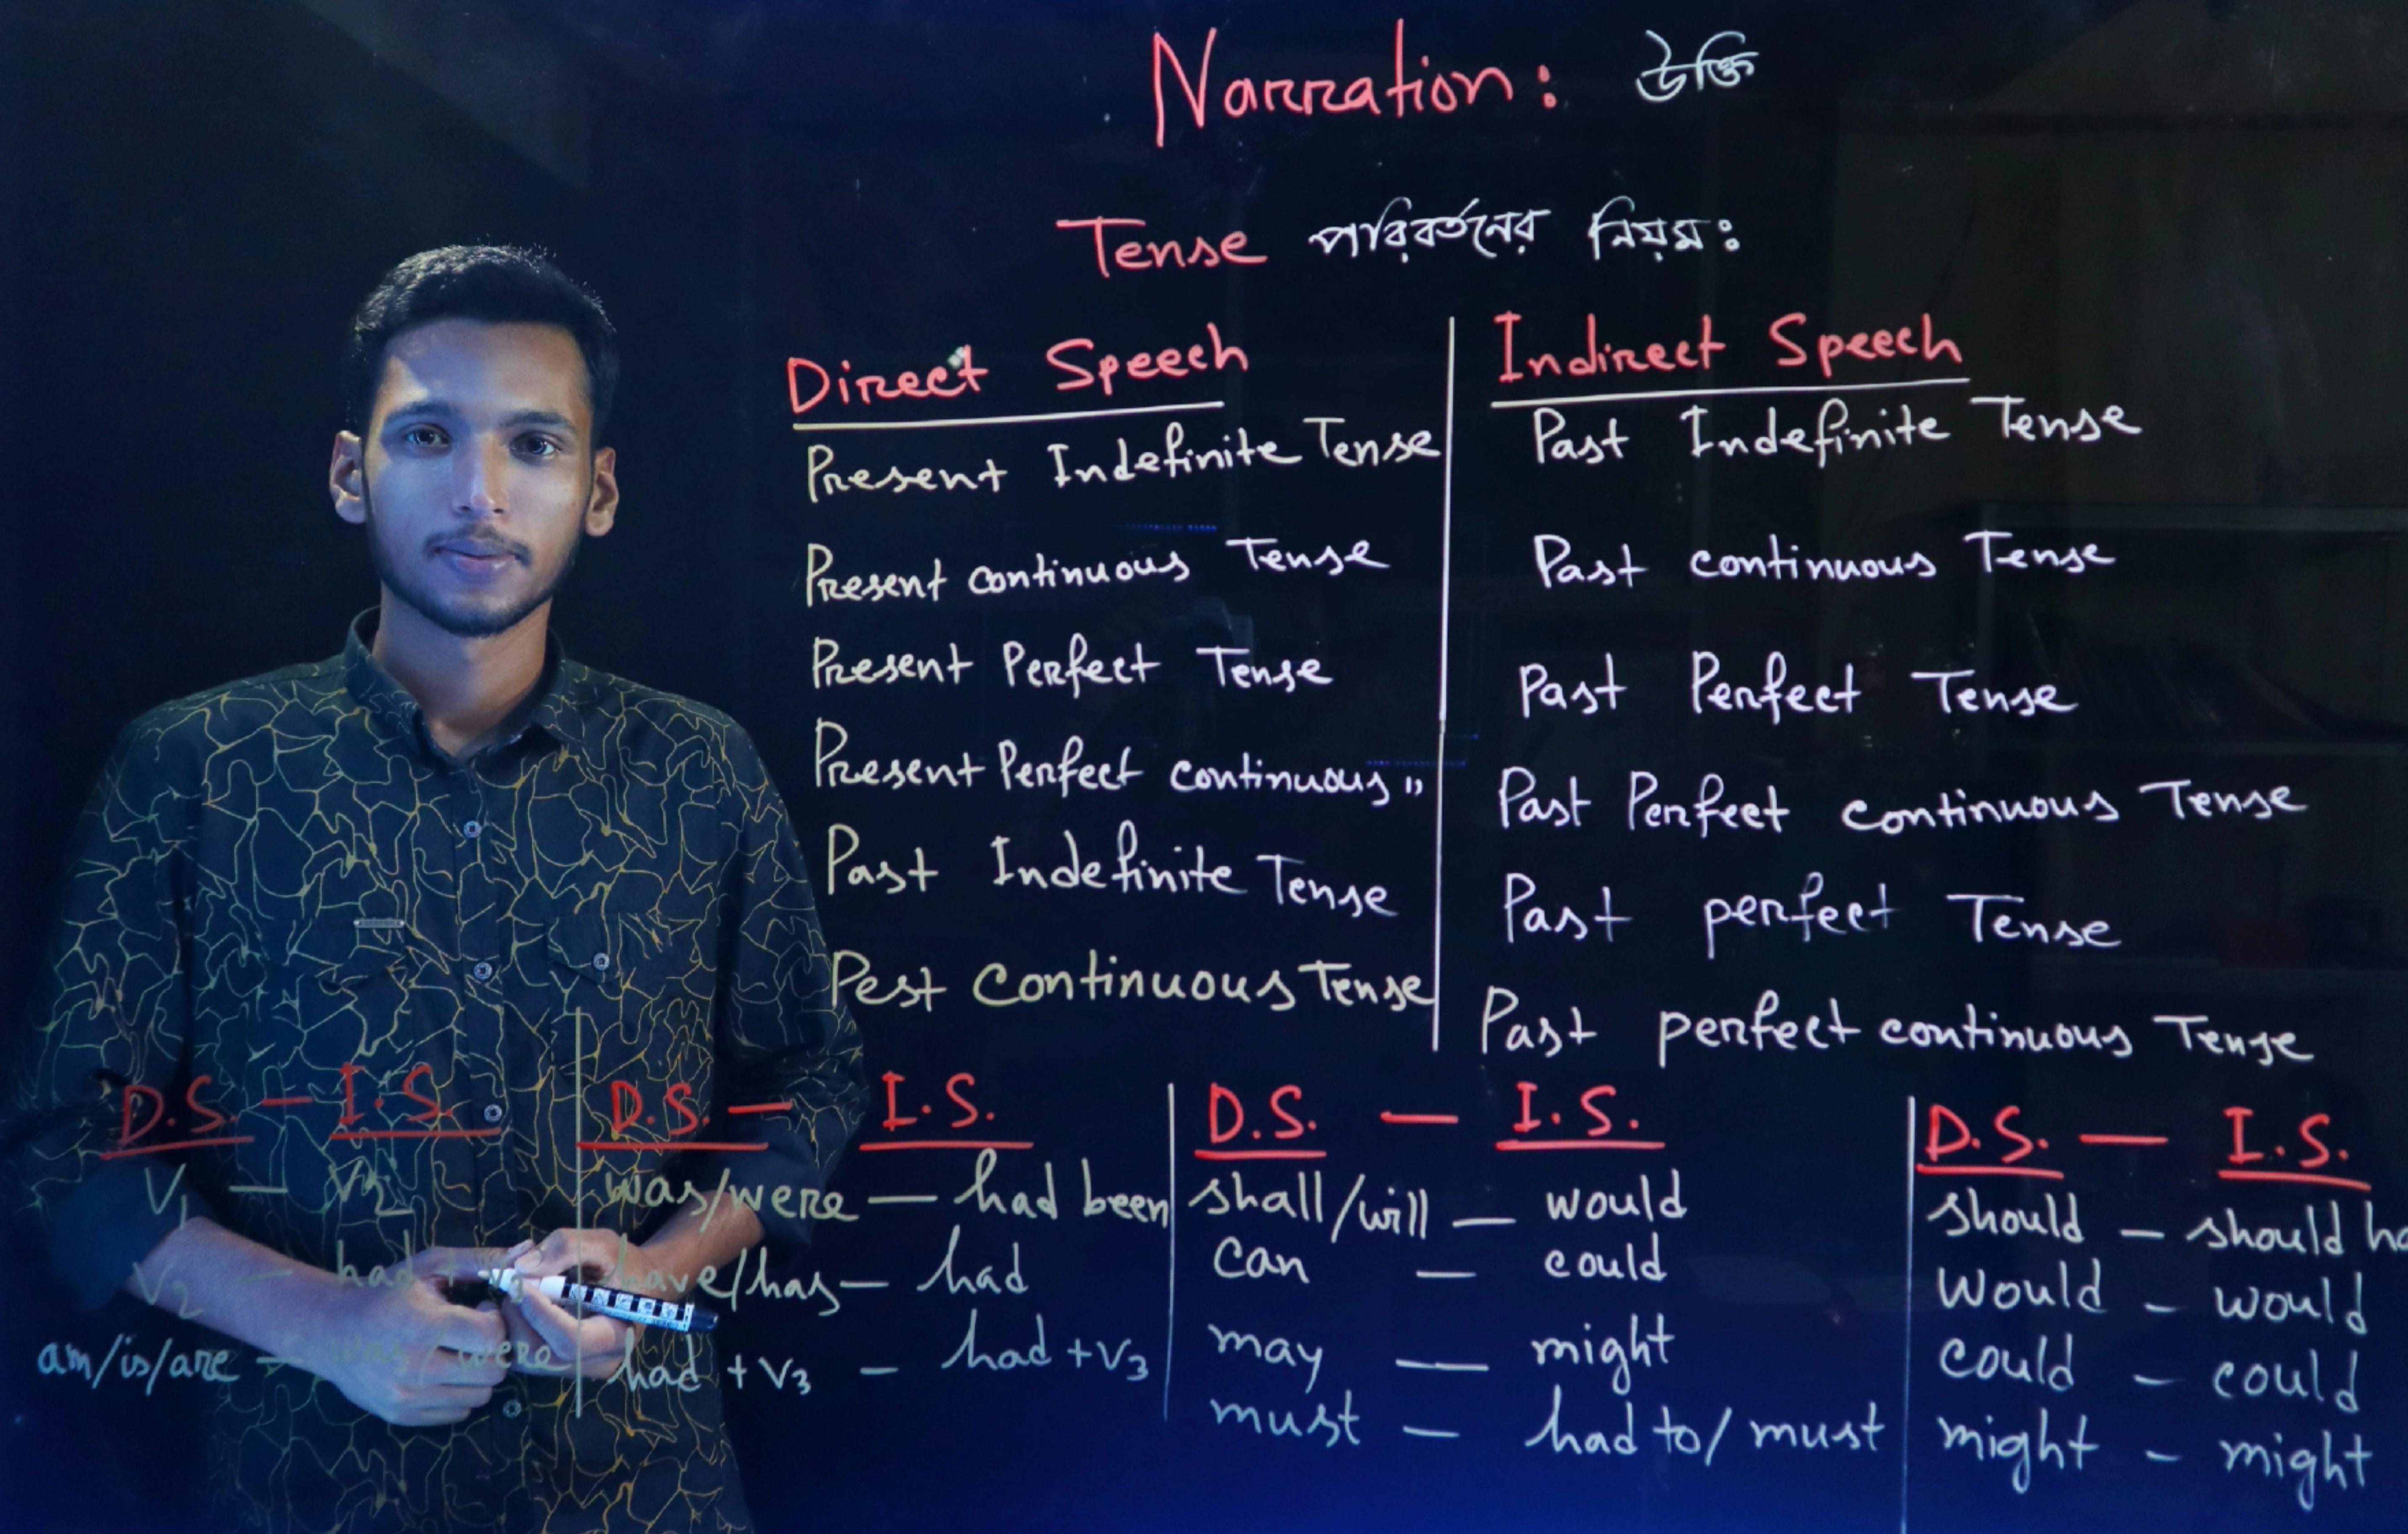 Narration: উক্তি
Tense পরিবর্তনের নিয়মঃ
Direct Speech Indirect Speech
Present Indefinite Tense Past Indefinite Tense
Present continuous Tense Past continuous Tense
Present Perfect Tense Past Perfect Tense
Present Perfect continuous " Past Perfect continuous Tense
Past Indefinite Tense Past perfect Tense
Pest continuous Tense Past perfect continuous Tense
D.S. — I.S. D.S. — I.S. D.S. — I.S. D.S. — I.S.
V1 — V2 was/were — had been shall/will — would should — should
V2 — had + have/has — had can — could would — would
am/is/are — was/were had + V3 — had + V3 may — might could — could
must — had to/must might — might